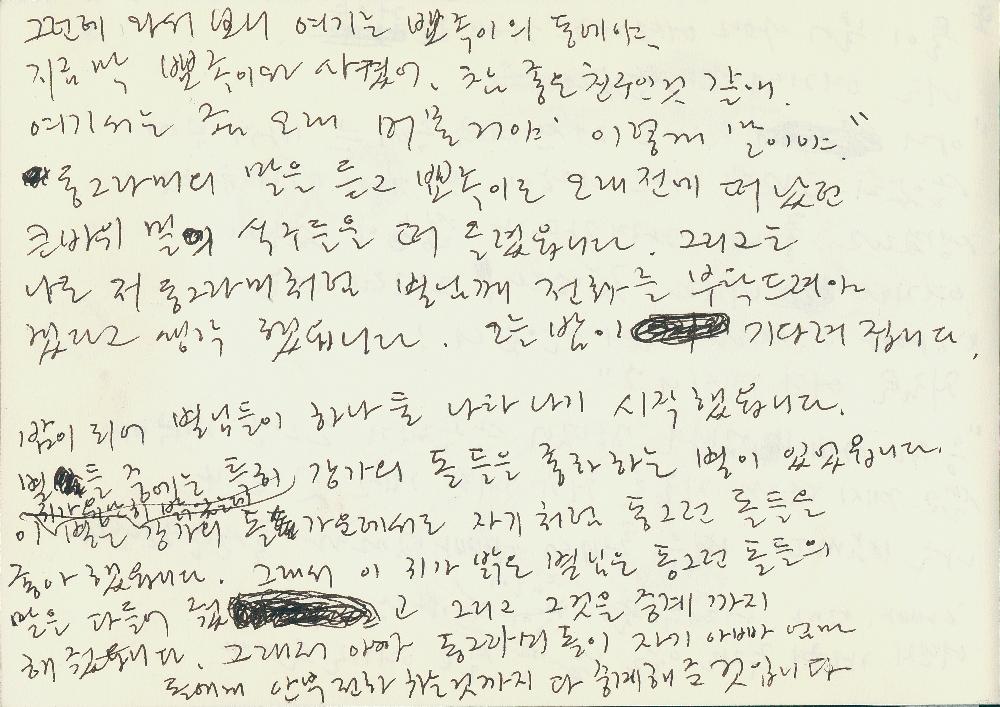 그런데 와서 보니 여기는 뾰족이의 동네야.
지금 막 뾰족이와 사귔어. 참 좋은 친구인것 같애.
여기서는 좀 오래 머물거야 이렇게 말이야."
동그라미의 말을 듣고 뾰족이도 오래전에 떠났던
큰바위 밑의 식구들을 떠 올렸읍니다. 그리고는
나도 저 동그라미처럼 별님께 전화를 부탁드려야
겠다고 생각 했읍니다. 오늘 밤이 기다려 집니다.
밤이 되어 별님들이 하나 둘 나타나기 시작 했읍니다.
별들 중에는 특히 강가의 돌들을 좋아하는 별이 있었읍니다.
이 별은 강가의 돌 가운데서도 자기처럼 동그런 돌들을
좋아 했읍니다. 그래서 이 귀가 밝은 별님은 동그런 돌들의
말을 다들어 줬고 그리고 그것을 중계 까지
해 줬읍니다. 그래서 아까 동그라미 돌이 자기 아빠 엄마
돌에게 안부전화 하는것까지 다 중계해 준 것입니다